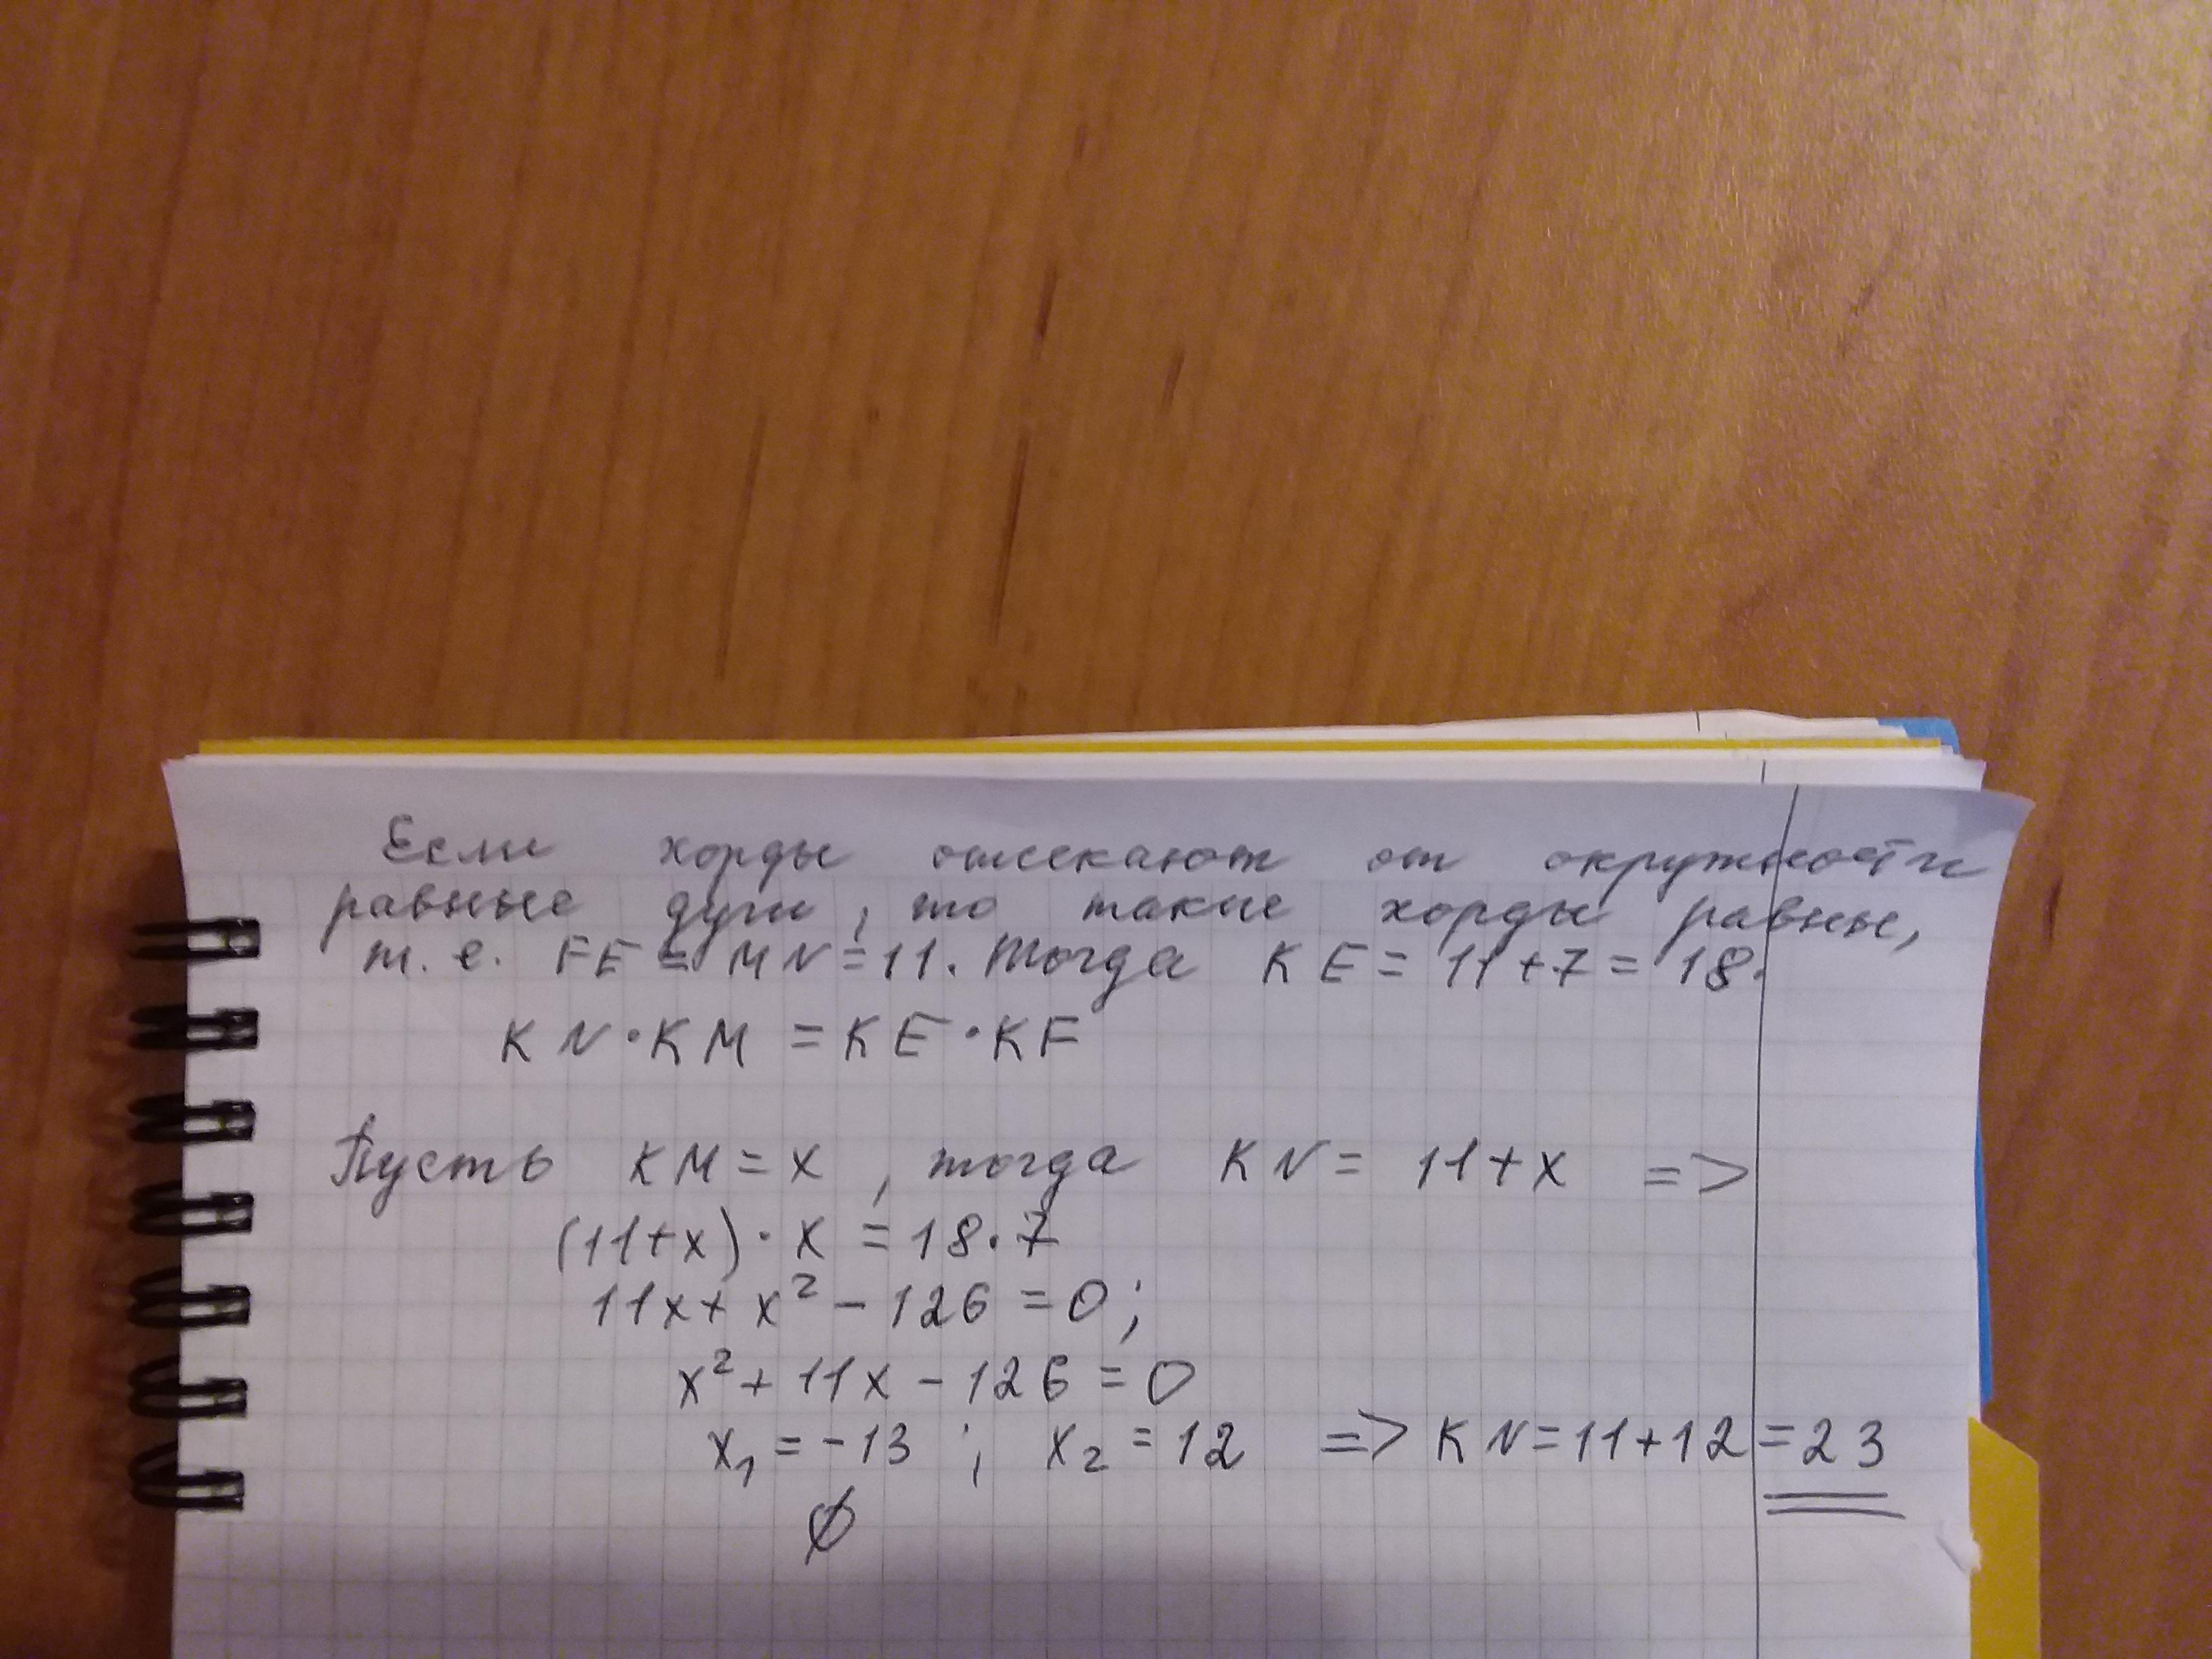 Если хорды отсекают от окружности
равные дуги, то такие хорды равны,
т. е. FE = MN = 11. Тогда KE = 11 + 7 = 18.
KN · KM = KE · KF
Пусть KM = x, тогда KN = 11 + x =>
(11+x) · x = 18 · 7
11x + x² - 126 = 0;
x² + 11x - 126 = 0
x₁ = -13 ; x₂ = 12 => KN = 11 + 12 = 23
∅